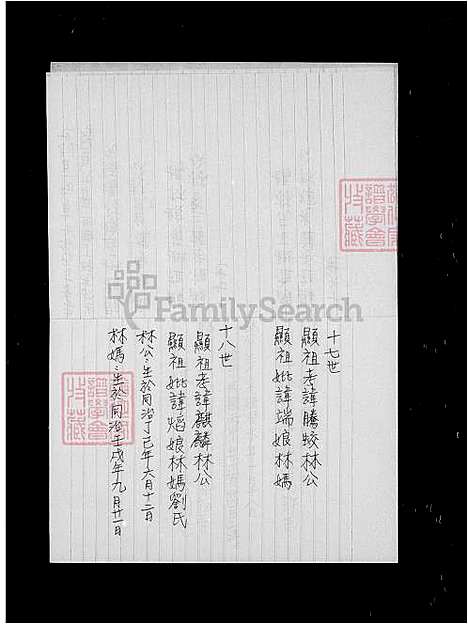 十七世
顯祖考諱騰蛟林公
顯祖妣諱端娘林媽
十八世
顯祖考諱麒麟林公
顯祖妣諱焰娘林媽劉氏
林公:生於同治丁己年六月十二日
林媽:生於同治壬戌年九月廿一日
譜學會
收藏
FamilySearch